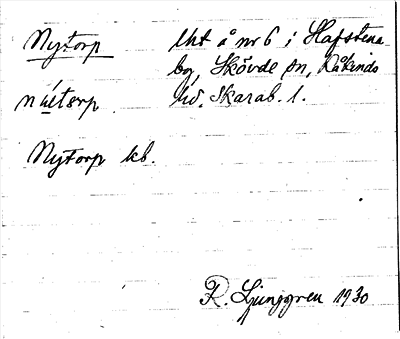 Nytorp
Uht å nr 6 i Hafstena
by, Skövde sn, Kåkinds
hd. Skarab. l.
Nytorp kb.
R. Ljunggren 1930